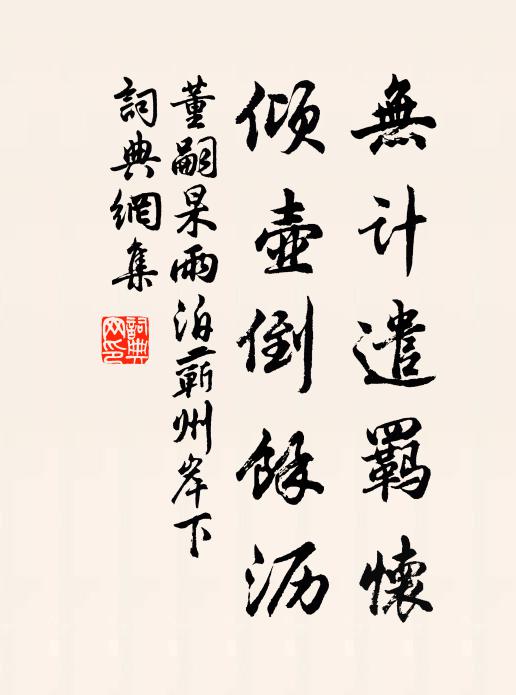 無计遣羁懷
倾壺倒餘沥
董嗣杲雨泊蕲州岸下
詞典網集
詞典网印